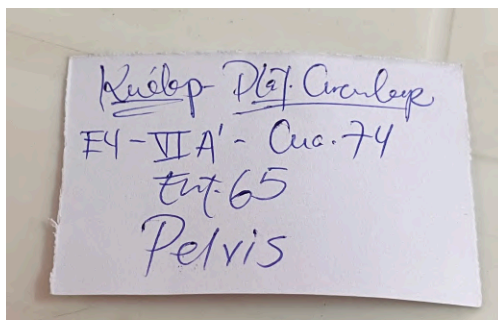 Kuélap - Plat. Circular
E4 - VII A' - Cua. 74
Ent. 65
Pelvis